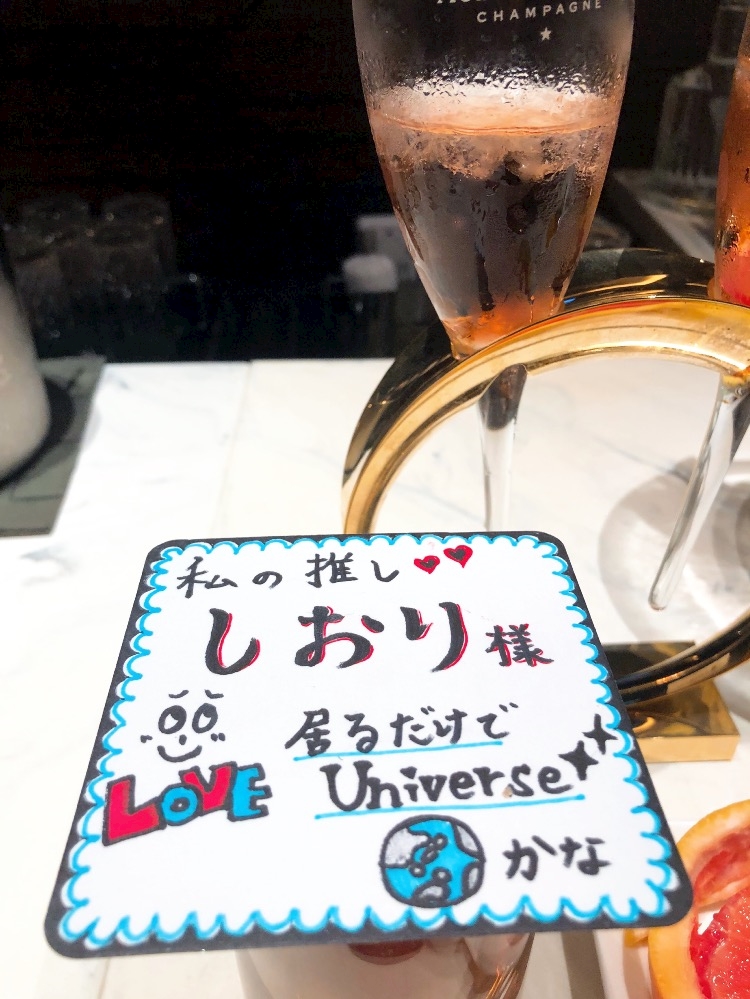 CHAMPAGNE
私の推し
しおり様
居るだけで
Universe
LOVE
かな